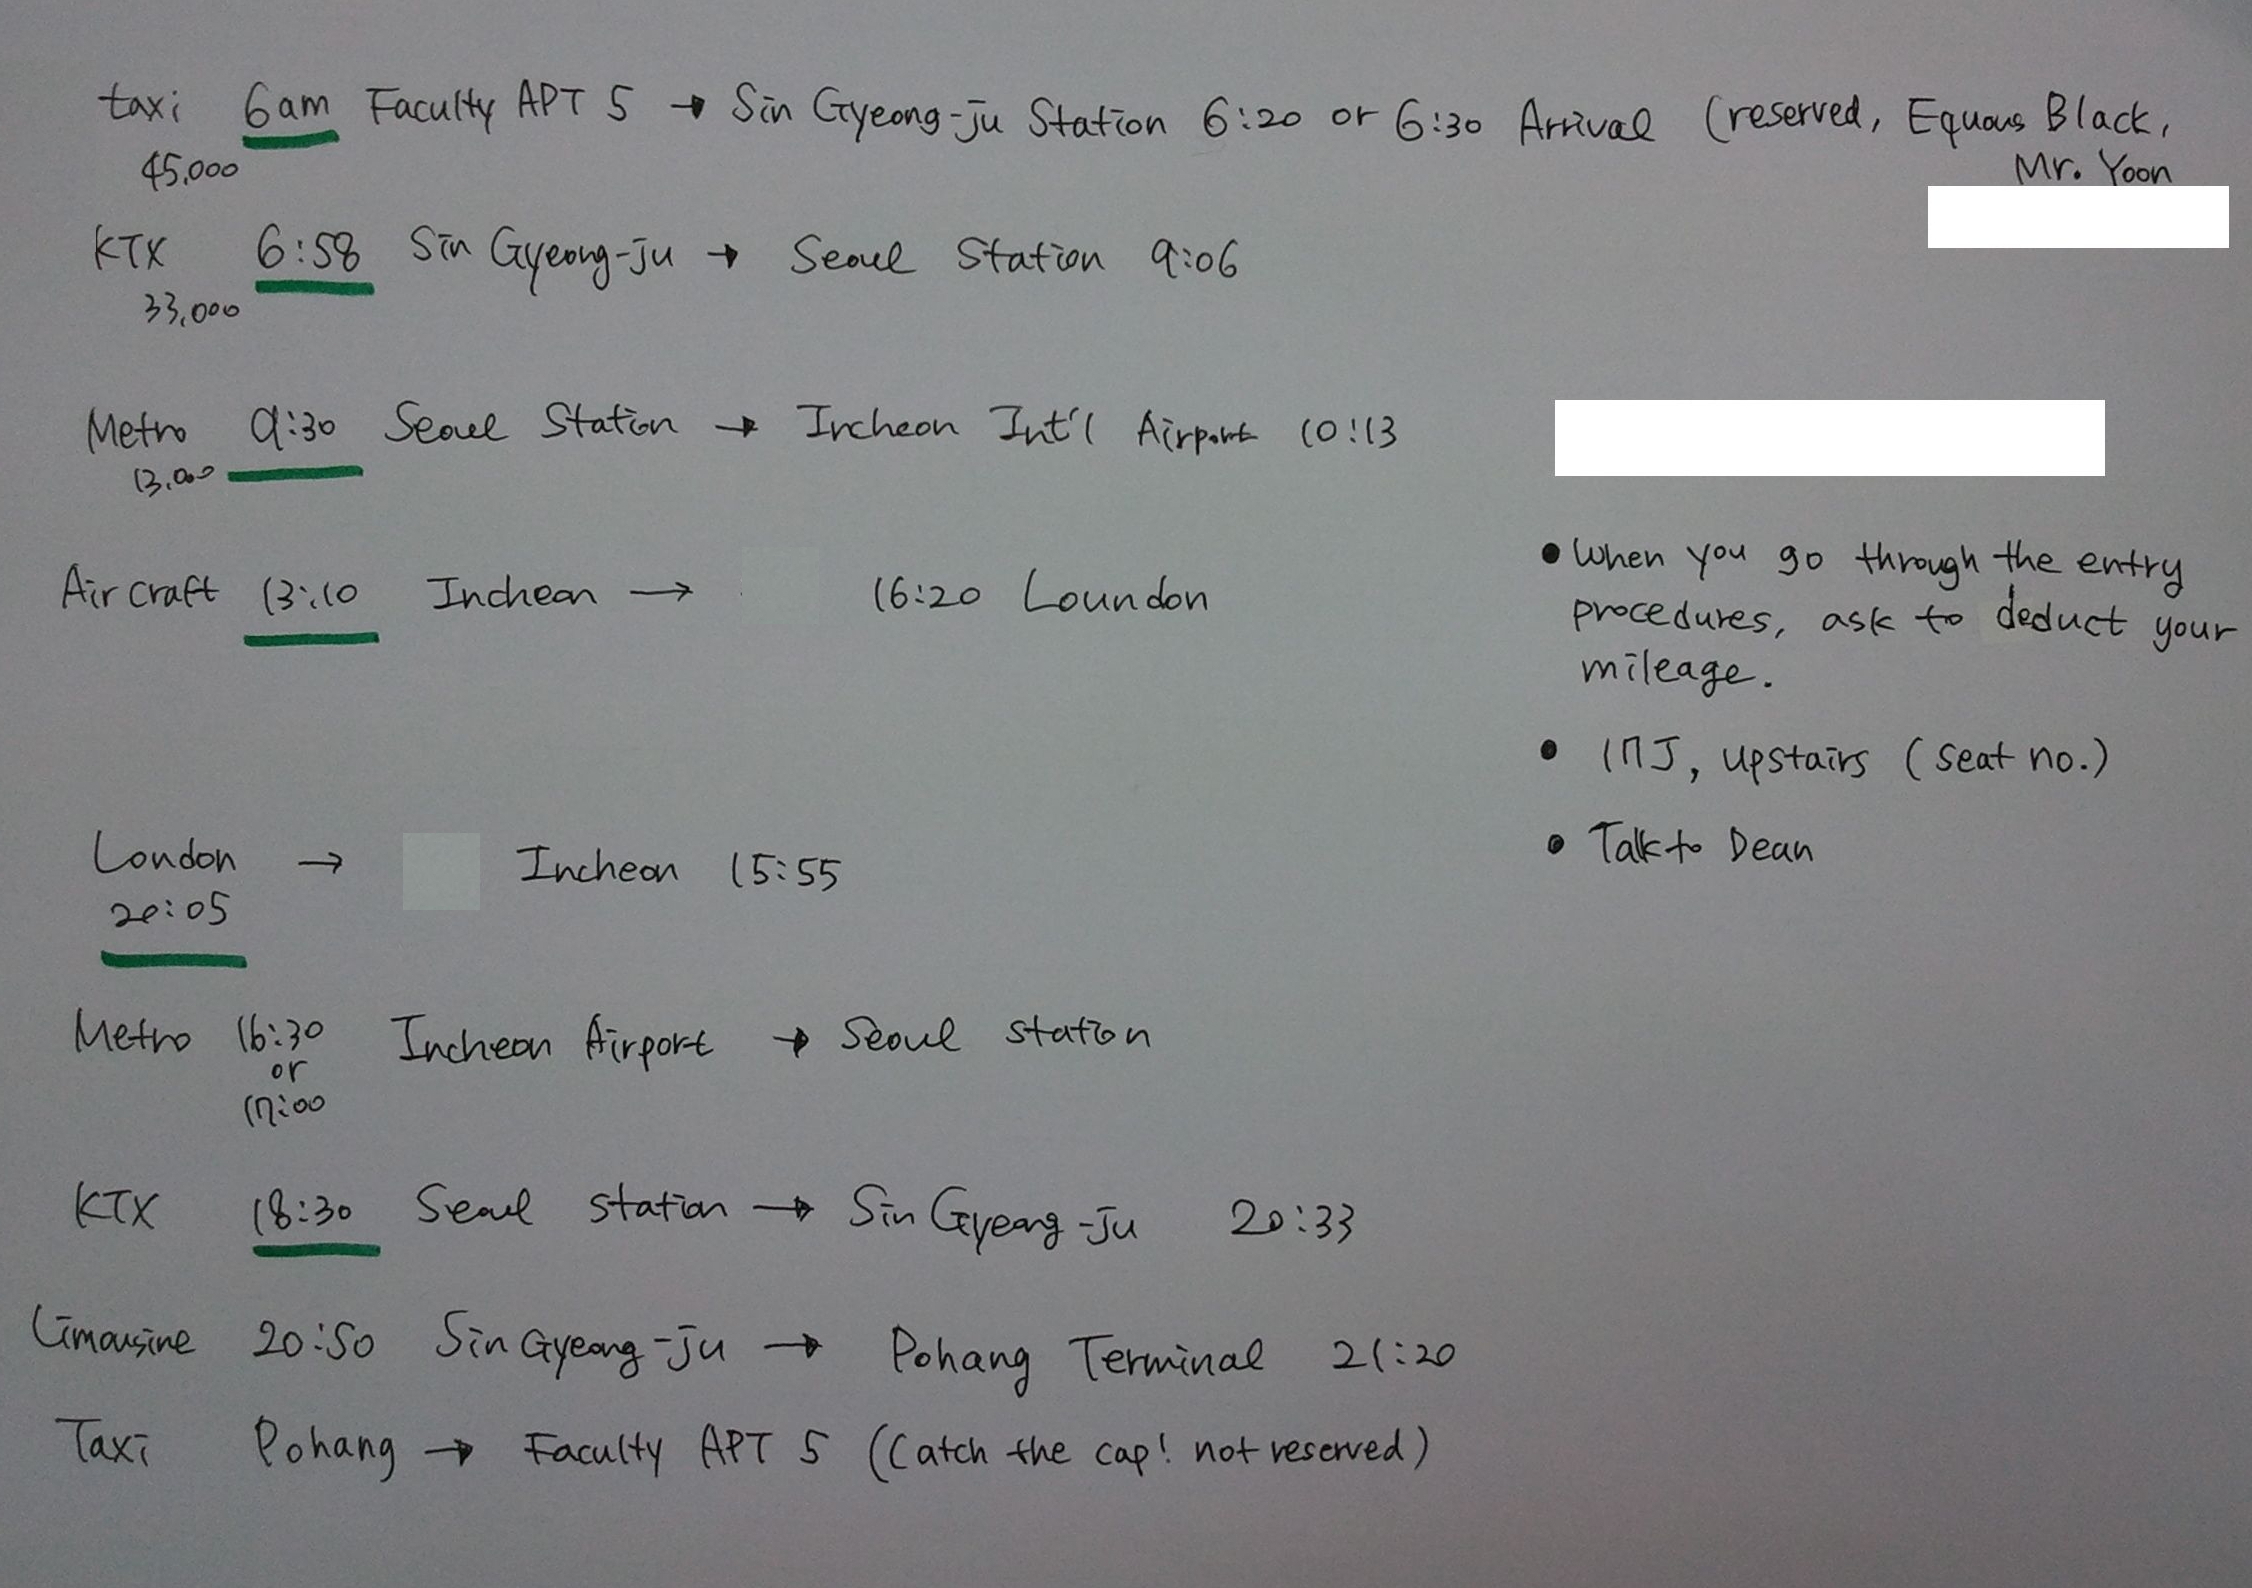 taxi 6am Faculty APT 5 → Sin Gyeong-ju Station 6:20 or 6:30 Arrival (reserved, Equous Black,
45,000
Mr. Yoon
KTX 6:58 Sin Gyeong-ju → Seoul Station 9:06
33,000
Metro 9:30 Seoul Station → Incheon Int'l Airport 10:13
13,000
Aircraft 13:10 Incheon → 16:20 Loundon
• When you go through the entry
procedures, ask to deduct your
mileage.
• 17J, upstairs (seat no.)
• Talk to Dean
London → Incheon 15:55
20:05
Metro 16:30 Incheon Airport → Seoul station
or
17:00
KTX 18:30 Seoul station → Sin Gyeong-ju 20:33
Limousine 20:50 Sin Gyeong-ju → Pohang Terminal 21:20
Taxi Pohang → Faculty APT 5 (Catch the cap! not reserved)